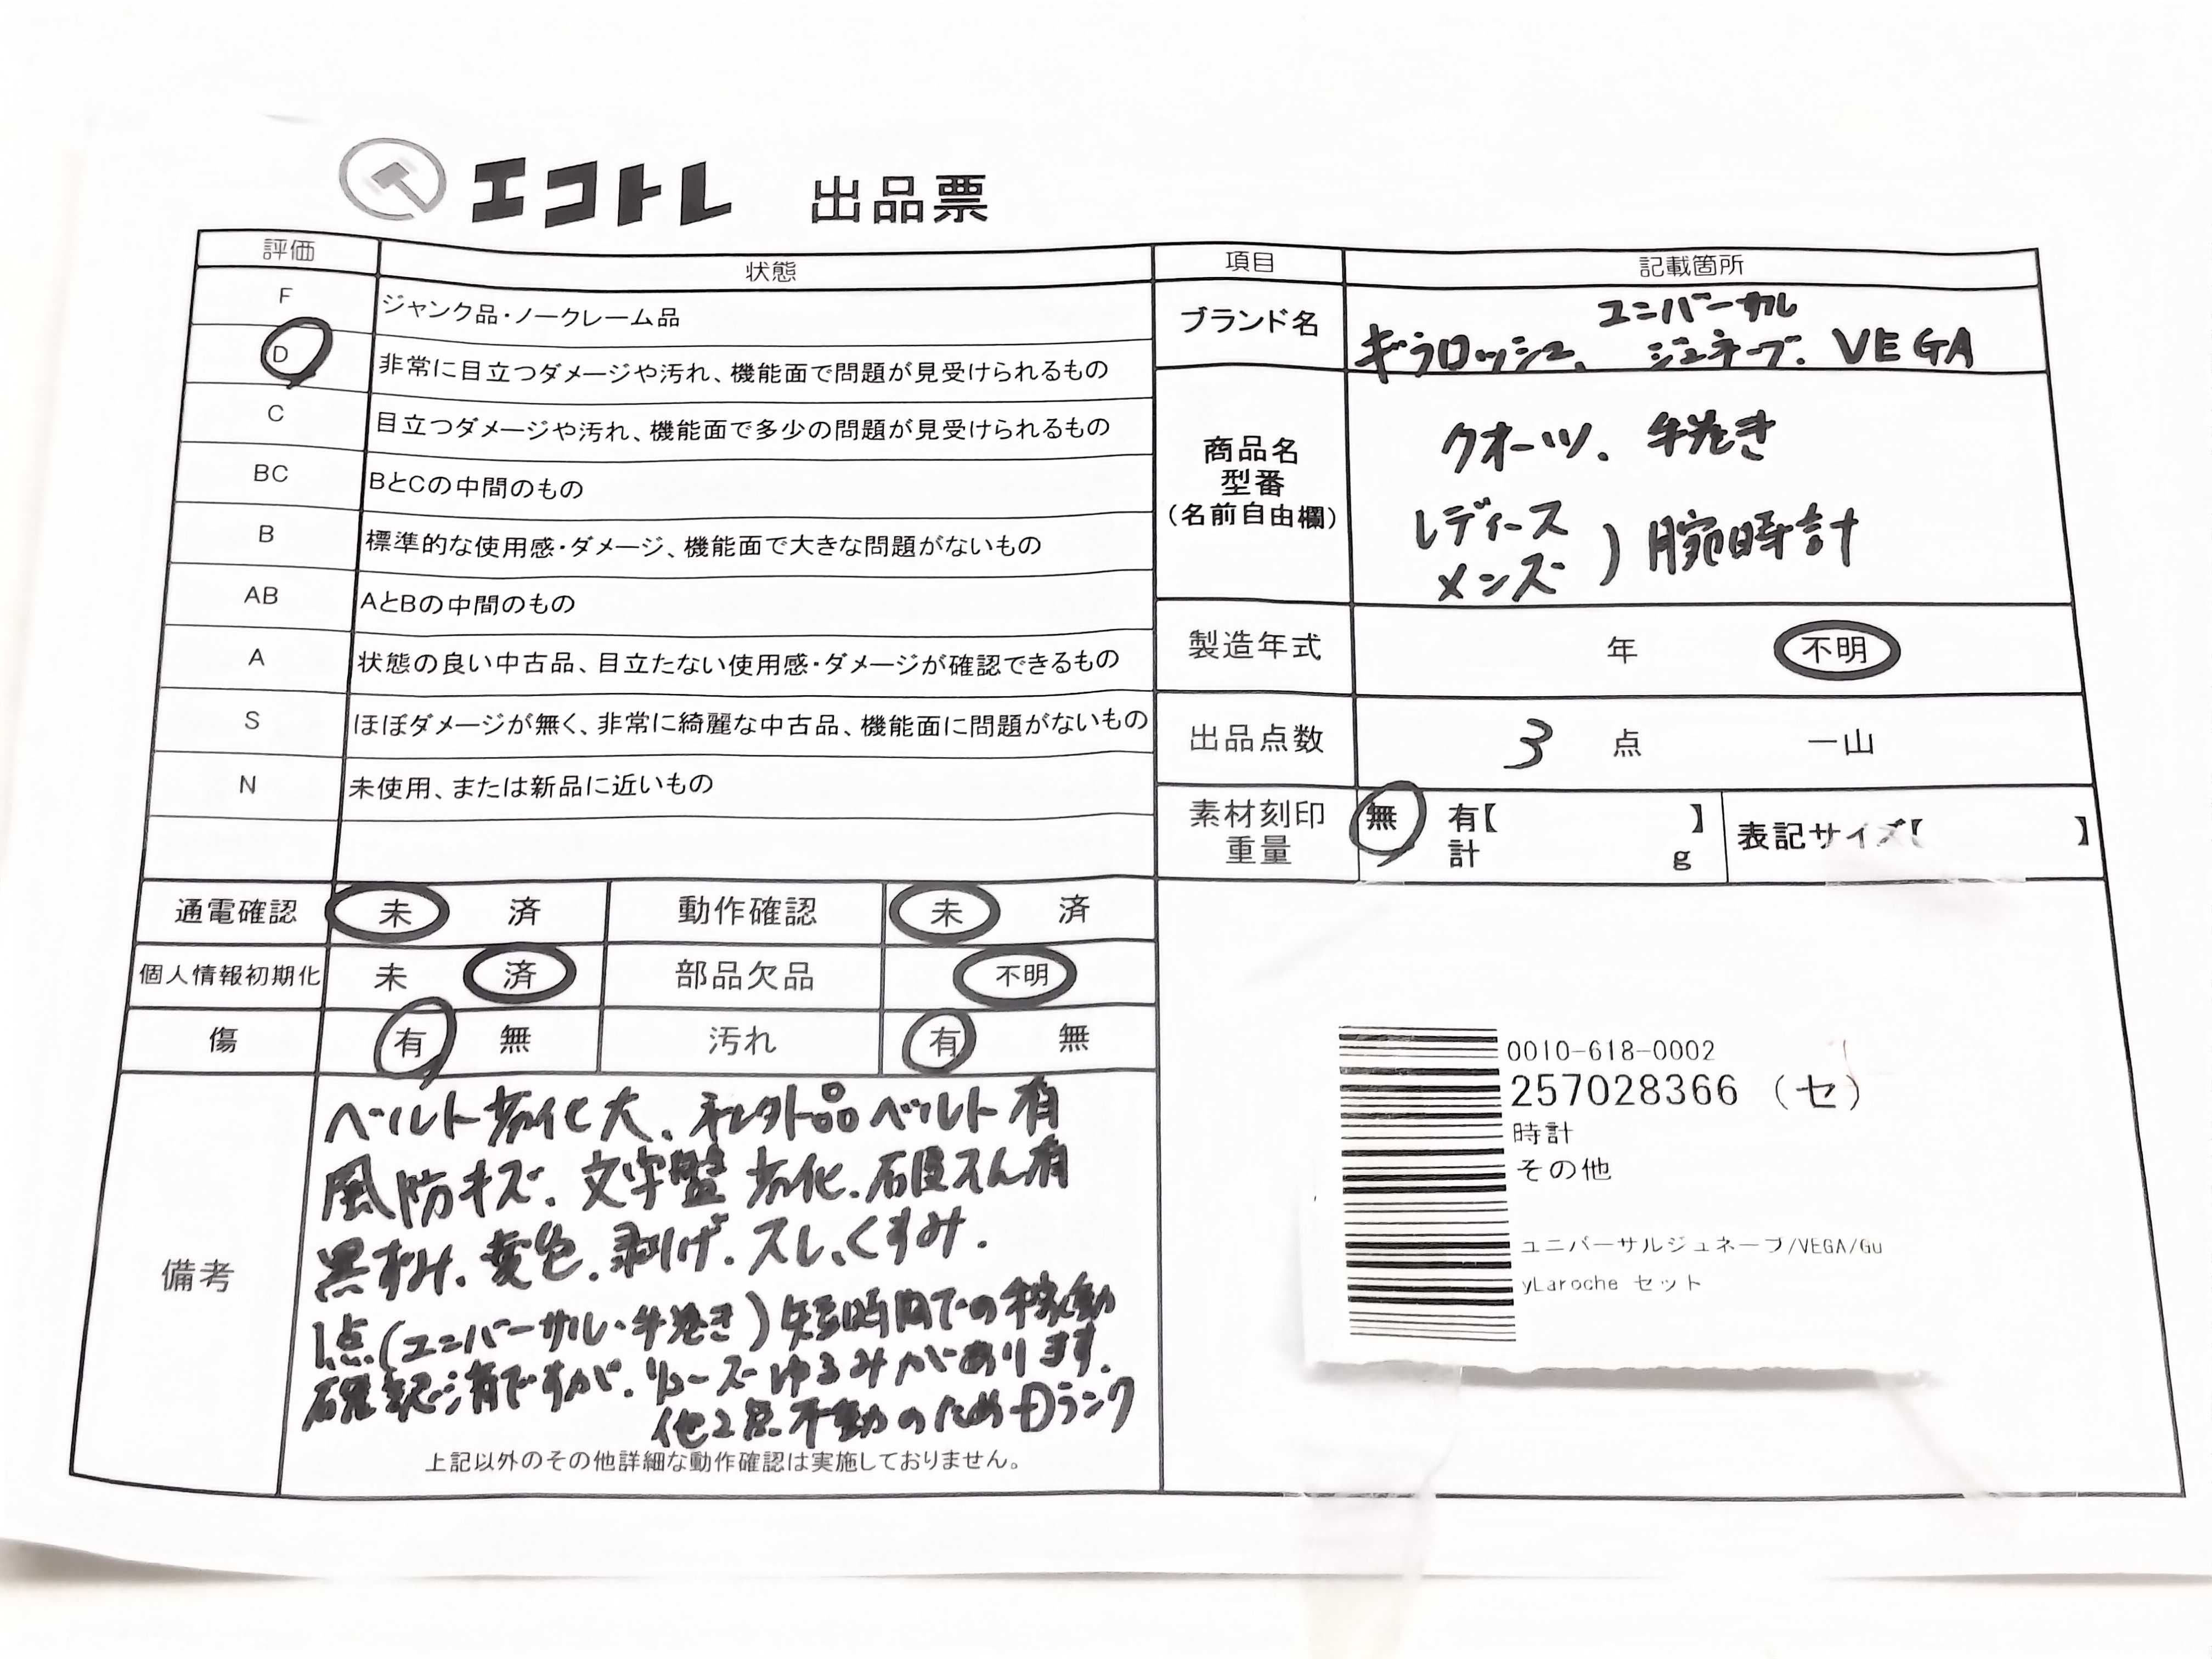 エコトレ 出品票
評価 状態 項目 記載箇所
F ジャンク品・ノークレーム品
D 非常に目立つダメージや汚れ、機能面で問題が見受けられるもの
C 目立つダメージや汚れ、機能面で多少の問題が見受けられるもの
BC BとCの中間のもの
B 標準的な使用感・ダメージ、機能面で大きな問題がないもの
AB AとBの中間のもの
A 状態の良い中古品、目立たない使用感・ダメージが確認できるもの
S ほぼダメージが無く、非常に綺麗な中古品、機能面に問題がないもの
N 未使用、または新品に近いもの
ブランド名
ユニバーサル
ギラロッシュ、ジュネーブ、VEGA
商品名
型番
(名前自由欄)
クオーツ、手巻き
レディース
メンズ ) 腕時計
製造年式 年 不明
出品点数 3 点 一山
素材刻印 無 有【 】 表記サイズ【 】
重量 計 g
通電確認 未 済 動作確認 未 済
個人情報初期化 未 済 部品欠品 不明
傷 有 無 汚れ 有 無
備考
ベルト劣化大、社外品ベルト有
風防キズ、文字盤劣化、石侵えん有
黒ずみ、変色、剥げ、スレ、くすみ、
1点(ユニバーサル・手巻き)短時間での稼動
確認済ですが、リューズゆるみがあります。
他2点不動のためDランク
上記以外のその他詳細な動作確認は実施しておりません。
0010-618-0002
257028366 (セ)
時計
その他
ユニバーサルジュネーブ/VEGA/Gu
yLaroche セット